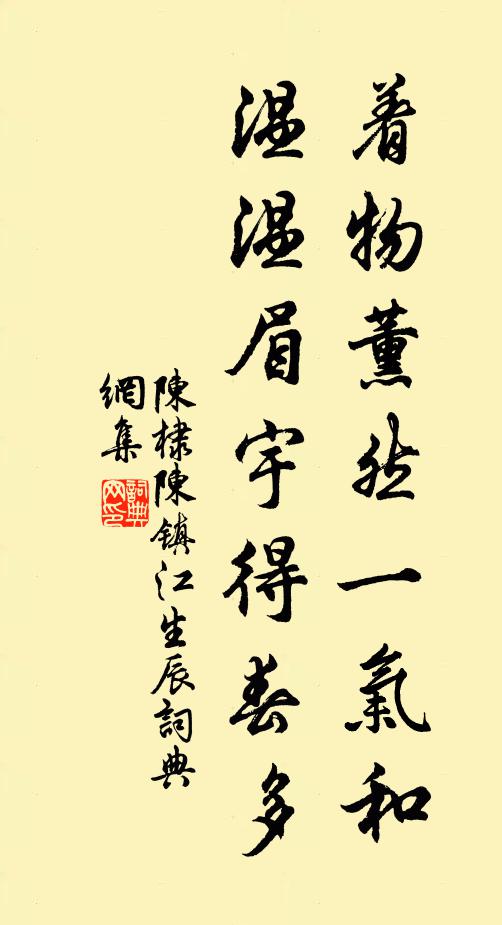 着物薰然一氣和
温温眉宇得春多
陳棣陳鎮江生辰詞典
網集
詞典
网印